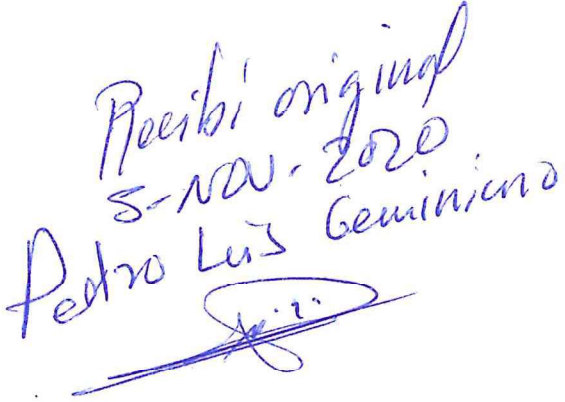 Recibí original
5-NOV-2020
Pedro Luis Geminiano